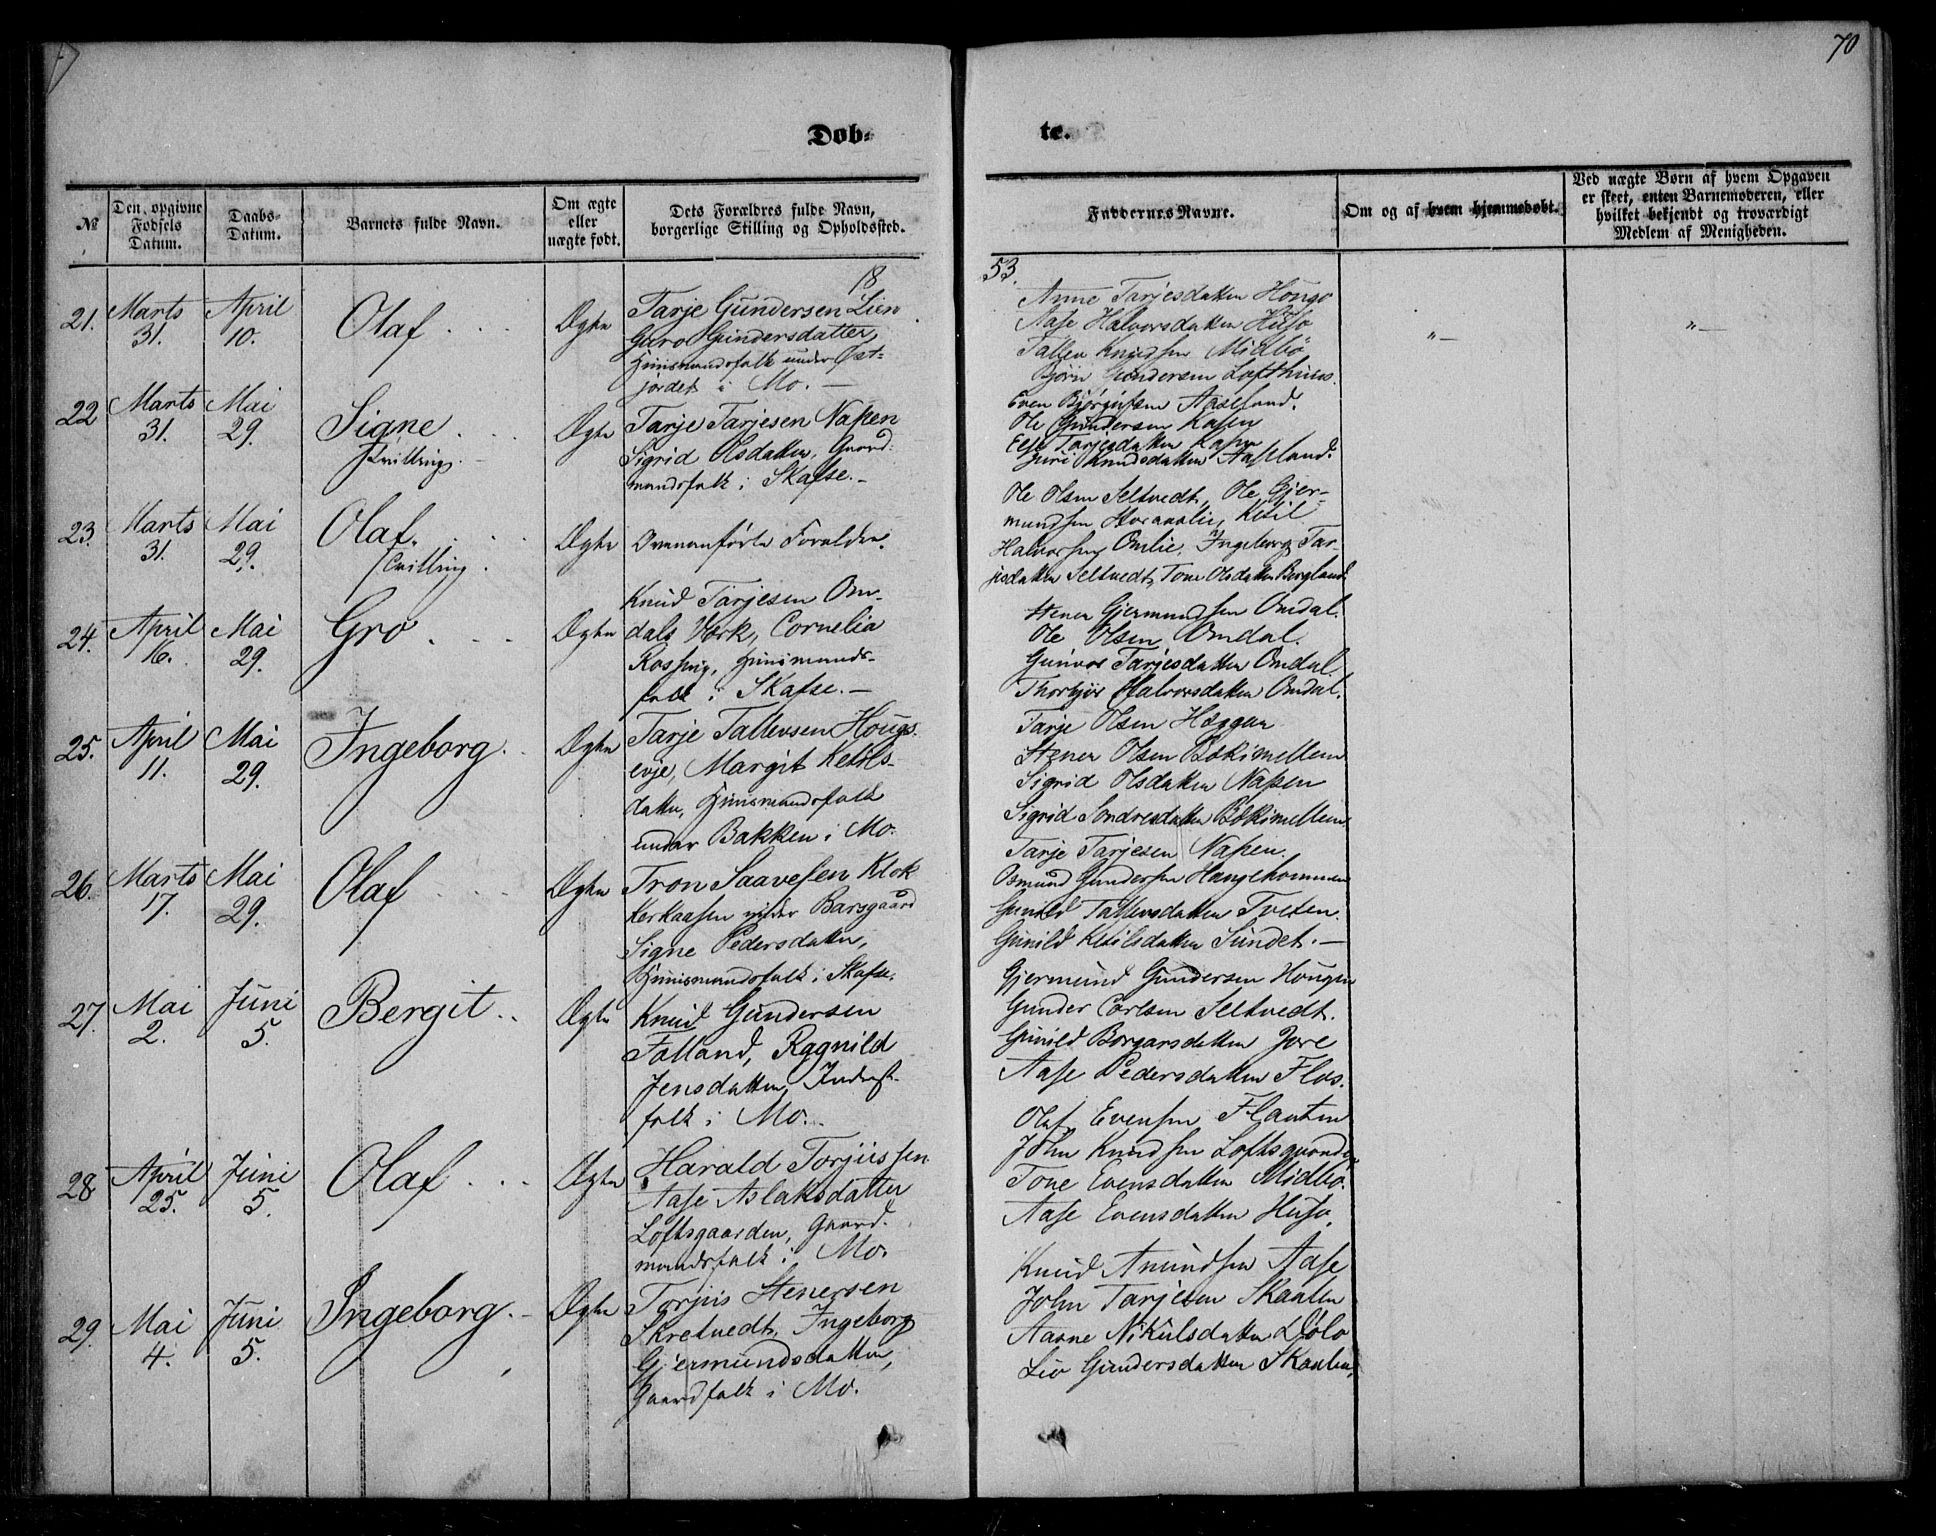 70
Døb-
te.
№
Den opgivne Fødsels Datum.
Daabs-Datum.
Barnets fulde Navn.
Om ægte eller uægte født.
Dets Forældres fulde Navn, borgerlige Stilling og Opholdssted.
Faddernes Navne.
Om og af hvem hjemmedøbt.
Ved uægte Børn af hvem Opgaven er skeet, enten Barnemoderen, eller hvilket bekjendt og troværdigt Medlem af Menigheden.
1853.
21. Marts 31. April 10. Olaf Ægte
Tarje Gundersen Lien
Guro Gundersdatter,
Huusmandsfolk under Øst-
jordet i Mo. —
Anne Tarjesdatter
Aase Halvorsdatter Huso
Tallev Knudsen Midbø
Bjørn Gundersen Lofthuus.
" —
" —
22 Marts 31. Mai 29. Signe Tvilling. Ægte
Tarje Tarjesen Napen
Sigrid Olsdatter, Gaard-
mandsfolk i Skafse. —
Even Aaseland.
Ole Gundersen Kasen
Tarjesdatter Kasen
Guri Knudsdatter Aaseland.
23. Marts 31. Mai 29. Olaf. Tvilling. Ægte
Ovenanførte Forældre.
Ole Olsen Seltvedt, Ole Gjer-
mundsen Ketil
Halvorsen Omlie, Ingeborg Tar-
jesdatter Seltvedt, Tone Olsdatter Bergland.
24. April 16. Mai 29. Gro Ægte
Knud Tarjesen Om-
dals Værk, Cornelia
Huusmands-
folk i Skafse. —
Stener Gjermundsen Omdal.
Ole Olsen Omdal.
Gunvor Tarjesdatter Omdal
Thorbjør Halvorsdatter Omdal.
25. April 11. Mai 29. Ingeborg Ægte
Tarje Tallevsen Hougs-
evje, Margit Ketils-
datter, Huusmandsfolk
under Bakken i Mo.
Tarje Olsen Hæggen
Stener Olsen Bøkimellem
Sigrid Olsdatter Napen
Sigrid Sondresdatter Bøkimellem
26. Marts 17. Mai 29. Olaf Ægte
Tron Saavesen Klok-
kerkaasen under Barsgaard
Signe Pedersdatter,
Huusmandsfolk i Skafse.
Tarje Tarjesen Napen.
Osmund Gundersen
Gunild Tallevsdatter Tveten.
Gunild Ketilsdatter Sundet. —
27. Mai 2. Juni 5. Bergit Ægte
Knud Gundersen
Falland, Ragnild
Jensdatter, Inderst-
folk i Mo.
Gjermund Gundersen Hougen
Gunder Carlsen Seltvedt.
Gunild Borgarsdatter Jore
Aase Pedersdatter Flos.
28 April 25. Juni 5. Olaf Ægte
Harald Torjussen
Aase Aslaksdatter
Loftsgaarden, Gaard-
mandsfolk i Mo.
Olaf Evensen Flauten
John Knudsen Loftsgaarden
Tone Evensdatter Midbø.
Aase Evensdatter Huso.
29. Mai 4. Juni 5. Ingeborg Ægte
Torjus Stenersen
Skretvedt, Ingeborg
Gjermundsdatter,
Gaardfolk i Mo.
Knud Amundsen Aase
John Tarjesen Skaalen
Aasne Nikulsdatter Dølo
Liv Gundersdatter Skaalen,